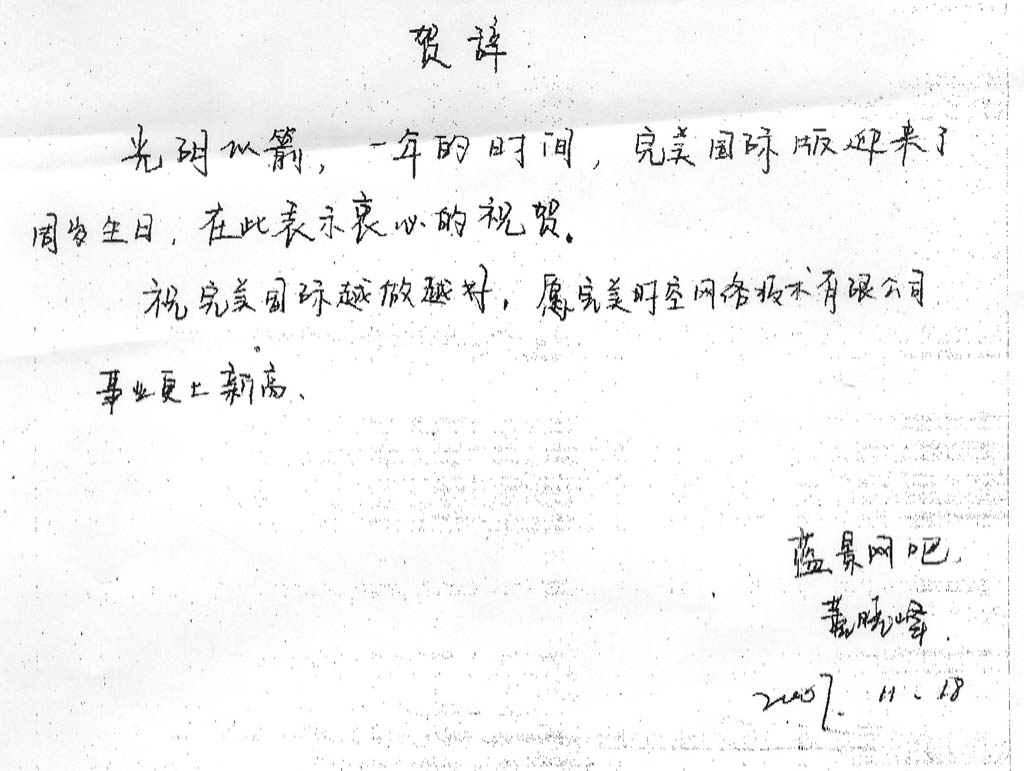 贺辞.
光阴似箭，一年的时间，完美国际版迎来了
周岁生日，在此表示衷心的祝贺。
祝完美国际越做越好，愿完美时空网络技术有限公司
事业更上新高、
蓝景网吧.
晓峰.
2007. 11. 18